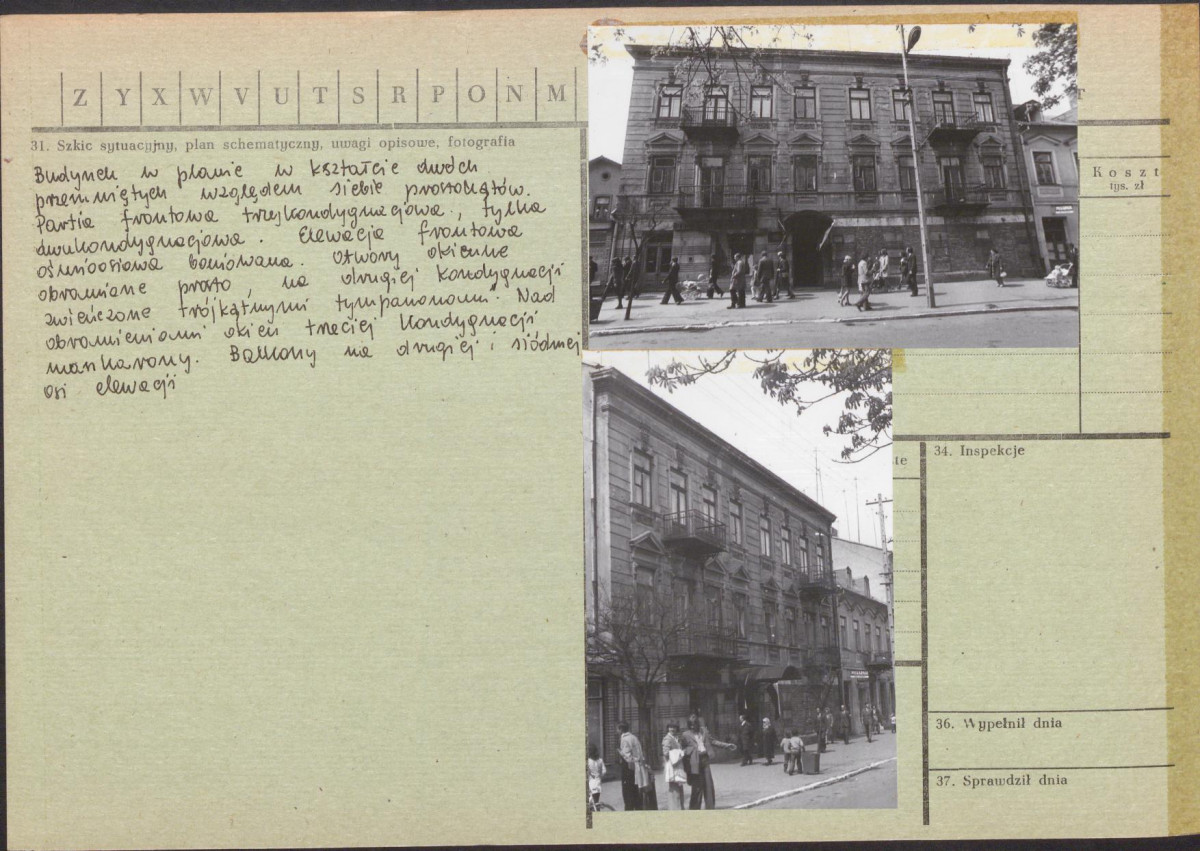 Z Y X W V U T S R P O N M
31. Szkic sytuacyjny, plan schematyczny, uwagi opisowe, fotografia
Budynek w planie w kształcie dwóch
przesuniętych względem siebie prostokątów.
Partia frontowa trzykondygnacjowa, tylna
dwukondygnacjowa. Elewacja frontowa
ośmioosiowa boniowana. Otwory okienne
obramiane prosto, na drugiej kondygnacji
zwieńczone trójkątnymi tympanonami. Nad
obramieniami okien trzeciej kondygnacji
maskarony. Balkony na drugiej i siódmej
osi elewacji
Koszt
tys. zł
te
34. Inspekcje
36. Wypełnił dnia
37. Sprawdził dnia